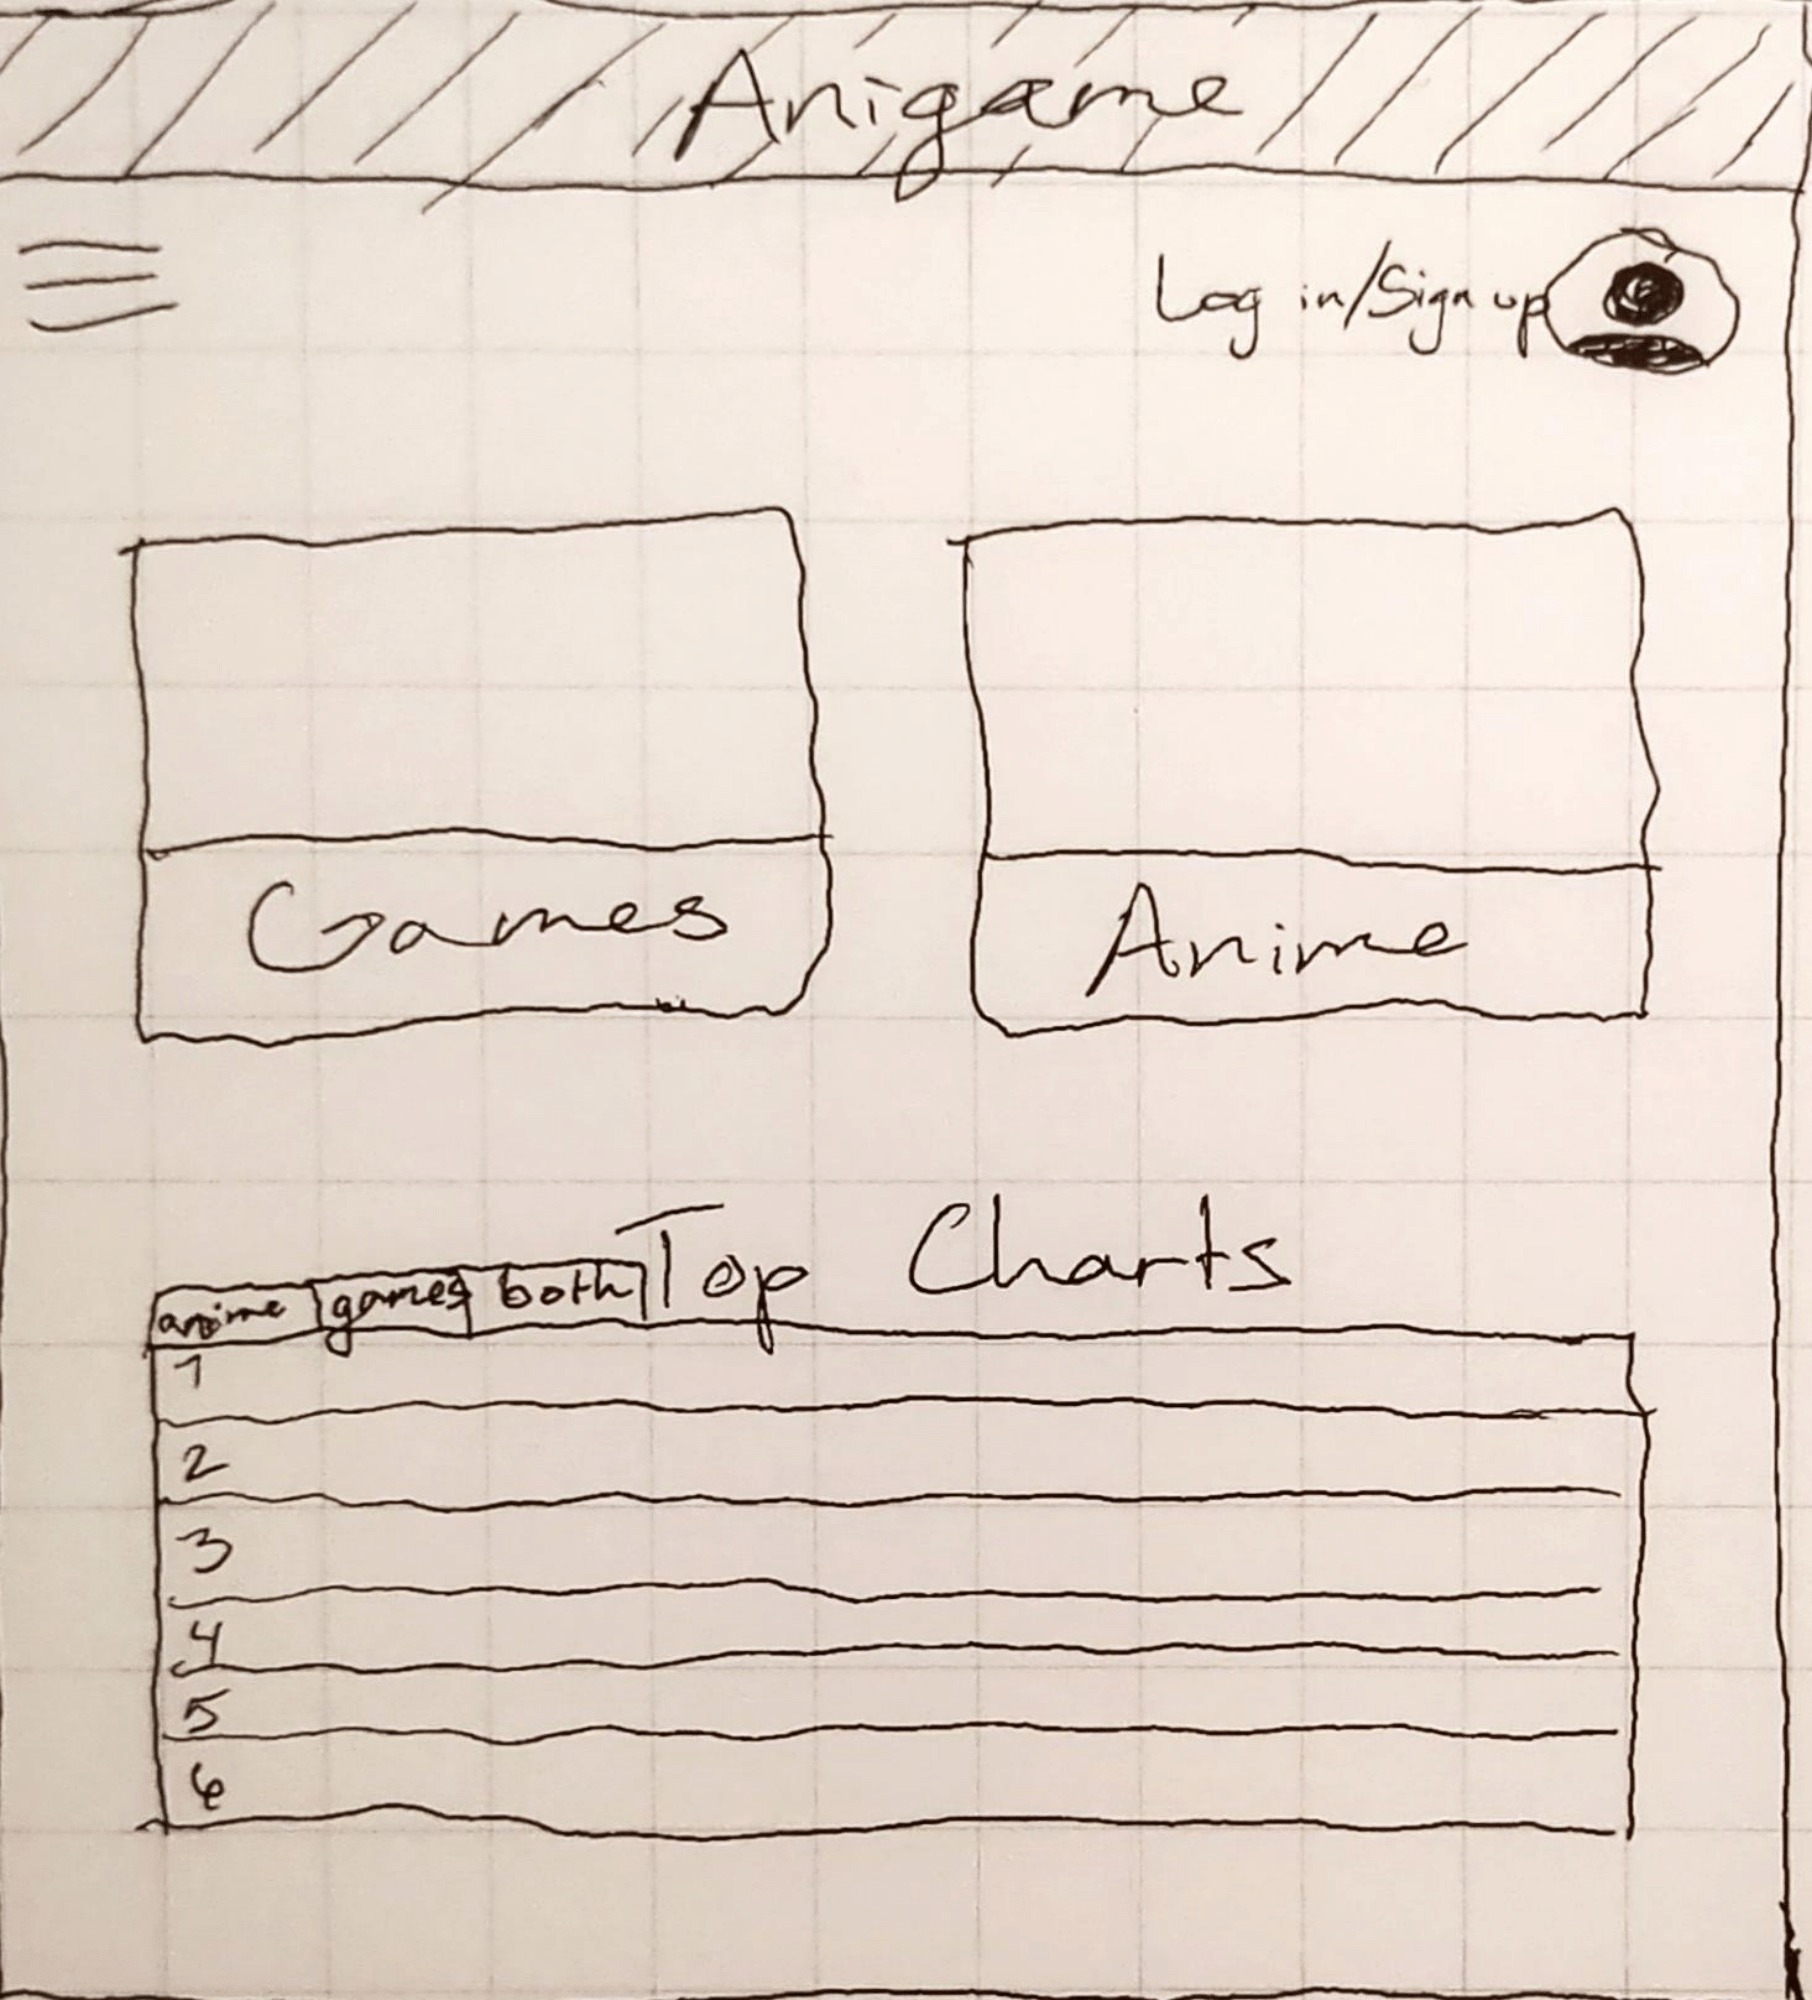 Anigame
Log in/Sign up
Games
Anime
Top Charts
anime games both
1
2
3
4
5
6